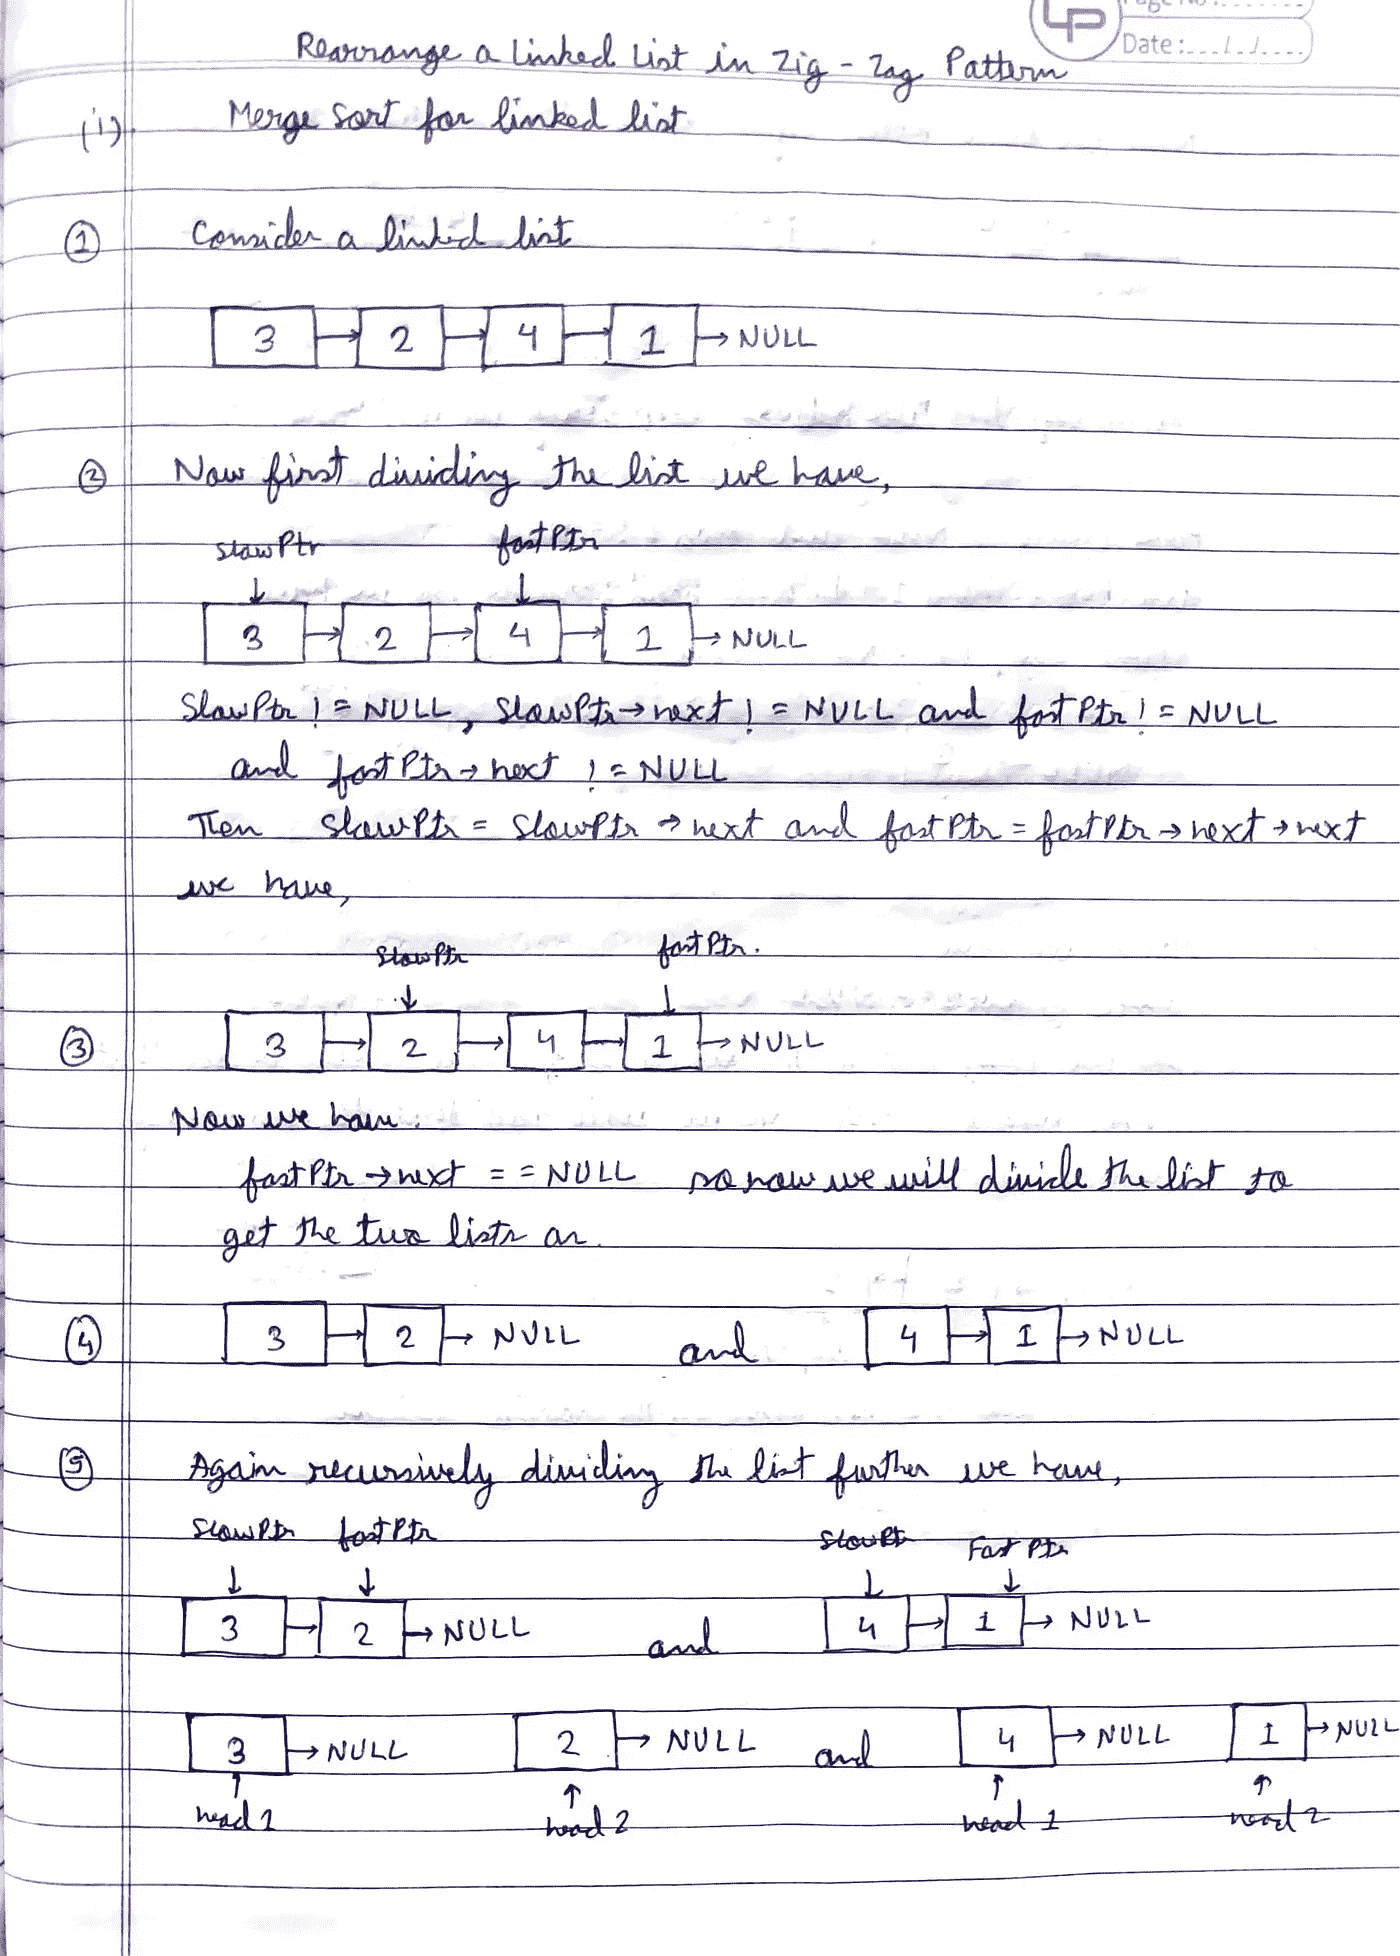 Page No :
Date :.../.../....
Rearrange a Linked List in Zig - Zag Pattern
(i) Merge Sort for linked list
① Consider a linked list
3 → 2 → 4 → 1 → NULL
② Now first dividing the list we have,
slowPtr fastPtr
↓ ↓
3 → 2 → 4 → 1 → NULL
SlowPtr != NULL, SlowPtr→next != NULL and fastPtr != NULL
and fastPtr→next != NULL
Then slowPtr = slowPtr → next and fastPtr = fastPtr→next→next
we have,
SlowPtr fastPtr.
↓ ↓
③ 3 → 2 → 4 → 1 → NULL
Now we have.
fastPtr →next == NULL so now we will divide the list to
get the two lists as.
④ 3 → 2 → NULL and 4 → 1 → NULL
⑤ Again recursively dividing the list further we have,
SlowPtr fastPtr SlowPtr FastPtr
↓ ↓ ↓ ↓
3 → 2 → NULL and 4 → 1 → NULL
3 → NULL 2 → NULL and 4 → NULL 1 → NULL
↑ ↑ ↑ ↑
head 1 head 2 head 1 head 2